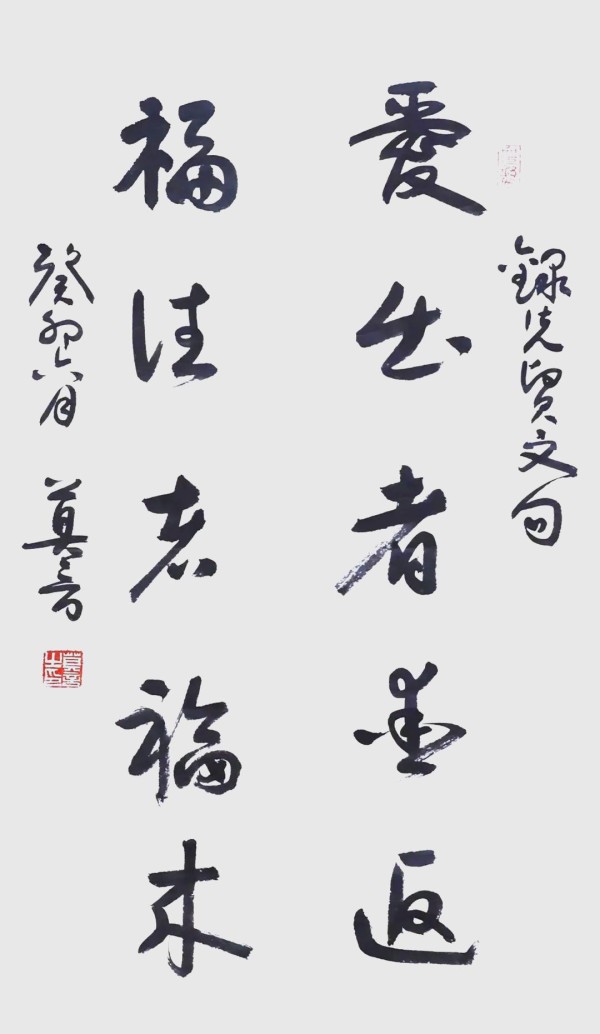 錄先賢文句
愛出者愛返
福往者福来
癸卯六月 莫言